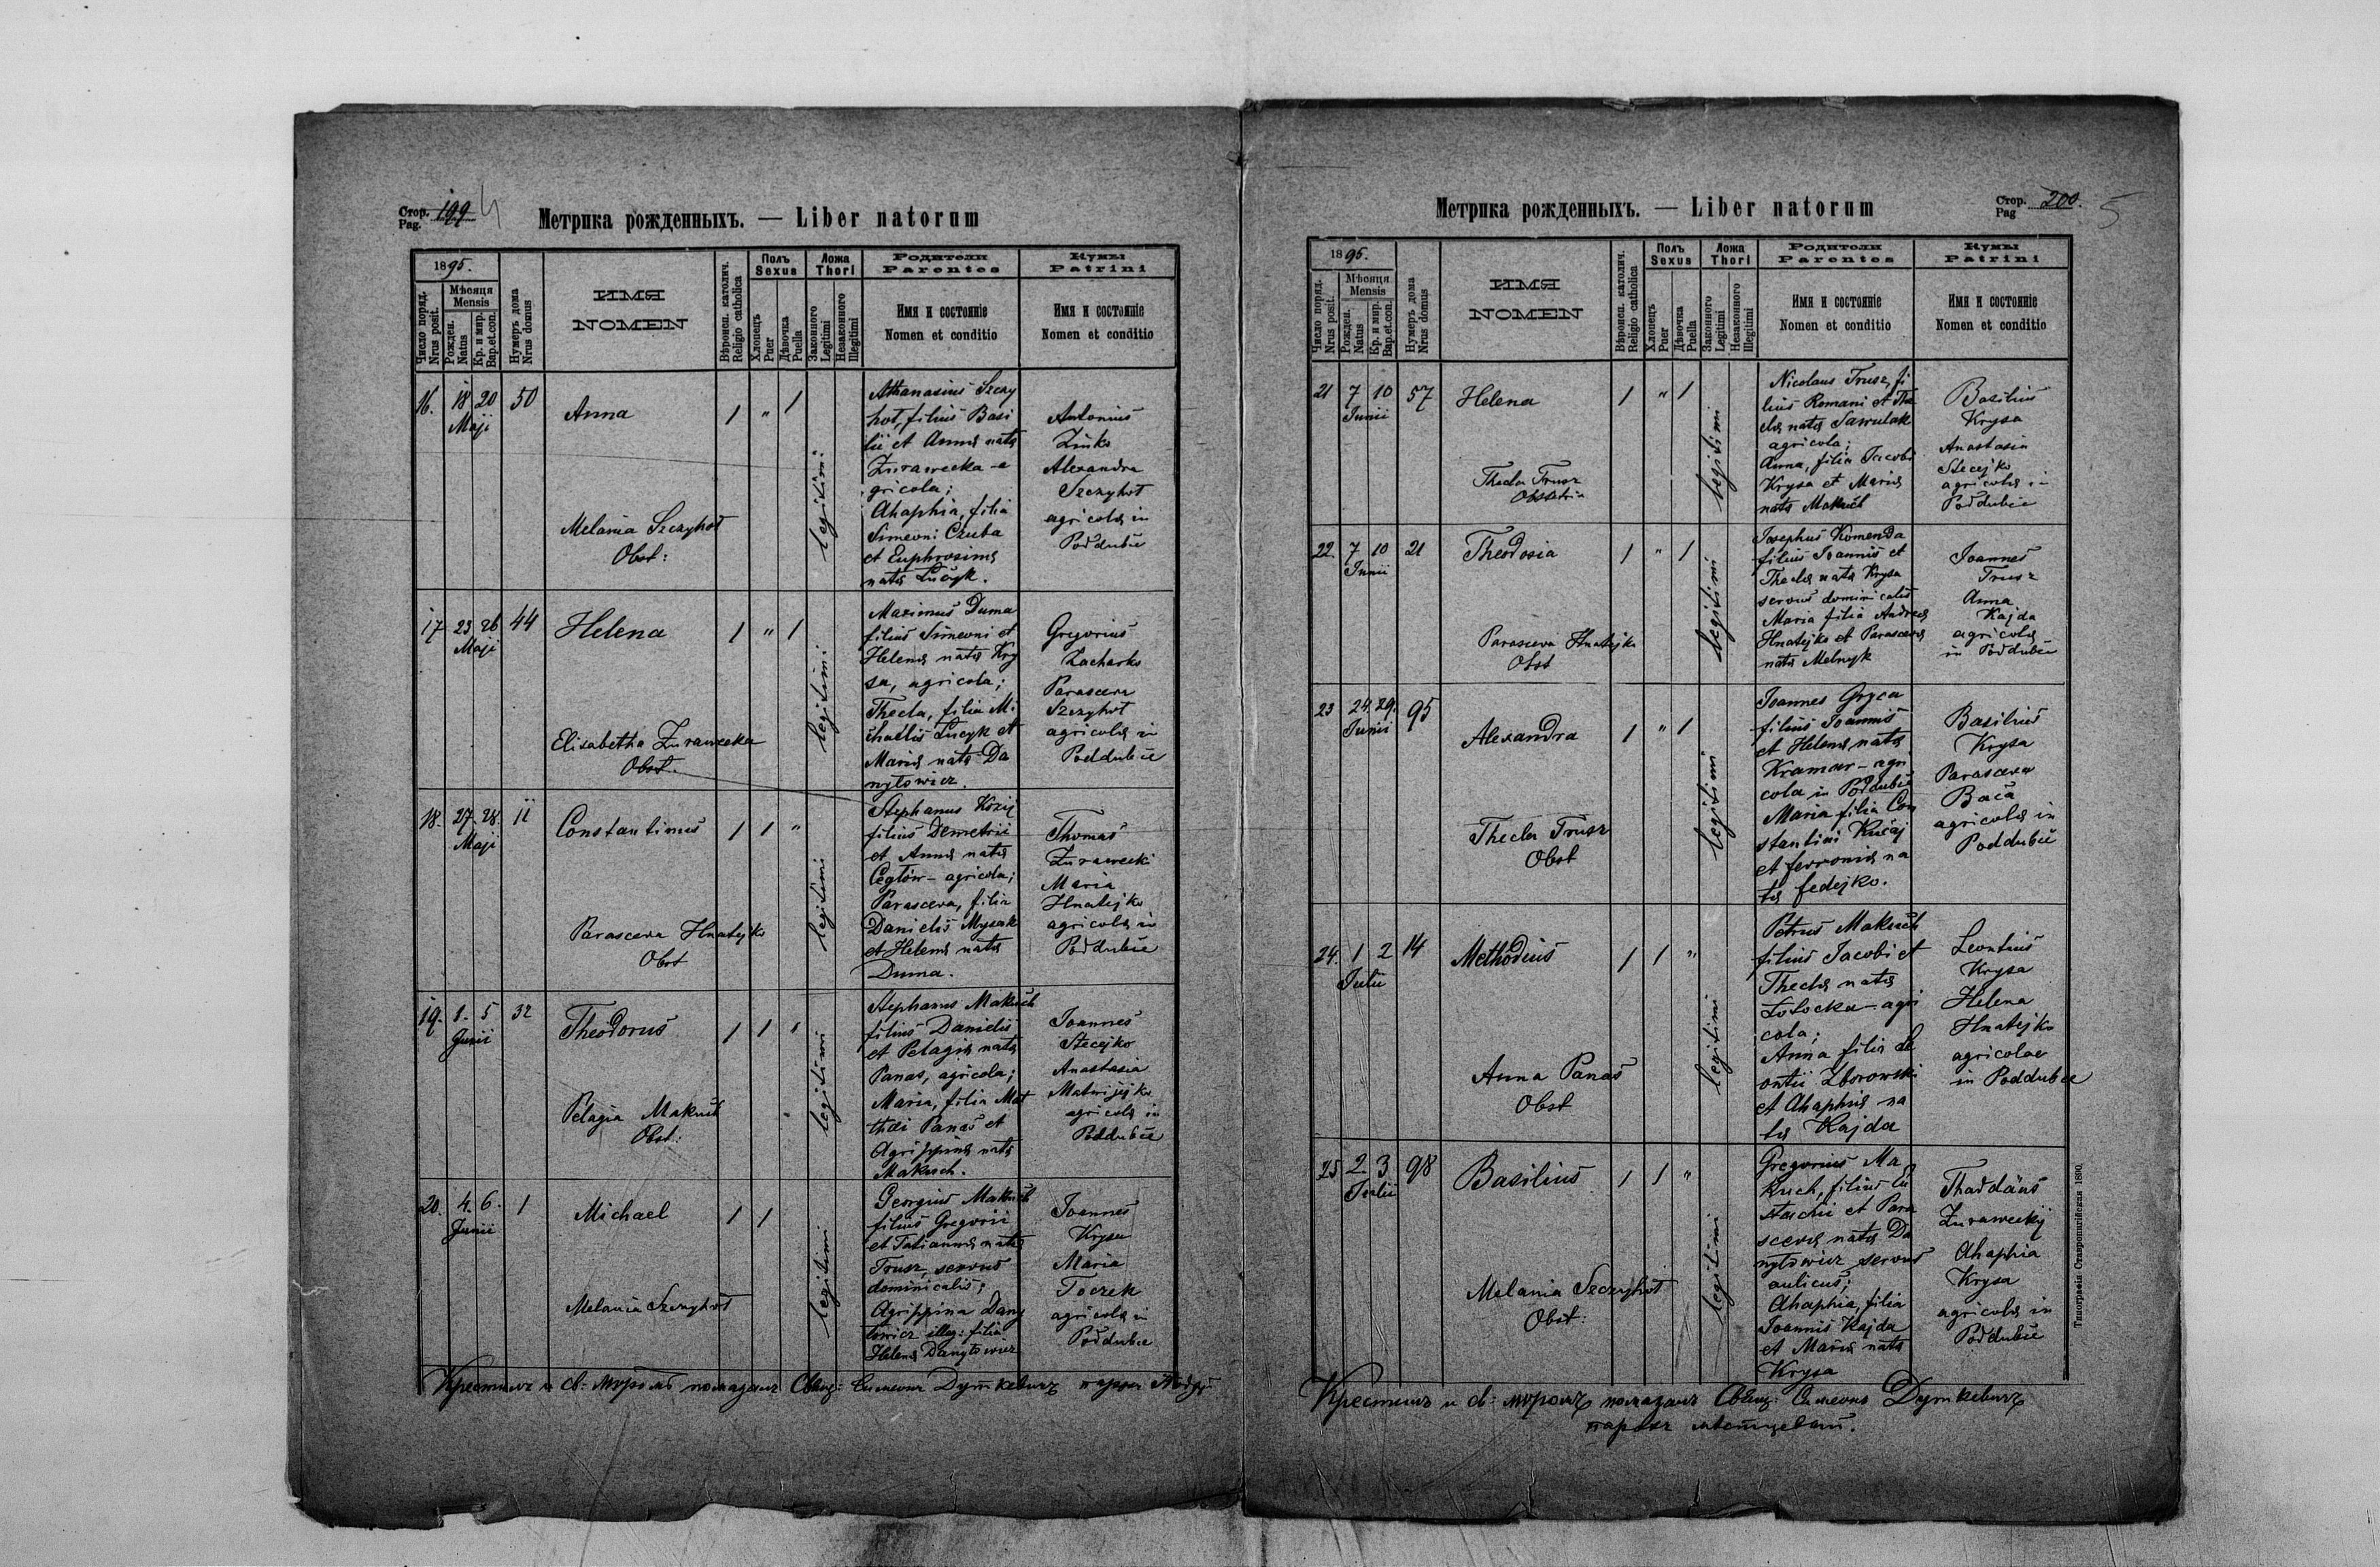 Стор. 199 4
Pag.
Метрика рожденныхъ. — Liber natorum
1895.
Число поряд.
Nrus posit.
Мѣсяця
Mensis
Рожден.
Natus
Кр. и мир.
Bap.et.con.
Нумеръ дома
Nrus domus
ИМЯ
NOMEN
Вѣроисп. католич.
Religio catholica
Полъ
Sexus
Хлопецъ
Puer
Дѣвочка
Puella
Ложа
Thori
Законного
Legitimi
Незаконного
Illegitimi
Родители
Parentes
Имя и состояніе
Nomen et conditio
Кумы
Patrini
Имя и состояніе
Nomen et conditio
16. 18 20 50
Maji
Anna
1 " 1
legitimi
Melania Szczyhot
Obst:
Athanasius Szczy
hot, filius Basi
lii et Anna nata
Żurawecka - a
gricola;
Ahaphia, filia
Simeoni Czuba
et Euphrosima
nata Łucyk.
Antonius
Zinko
Alexandra
Szczyhot
agricola in
Poddubce
17 23 26 44
Maji
Helena
1 " 1
legitimi
Elisabetha Żurawecka
Obst.
Maximus Duma
filius Simeoni et
Helena nata Kry
sa, agricola;
Thecla, filia Mi
chaelis Łucyk et
Maria nata Da
nyłowicz.
Gregorius
Zacharko
Parasceva
Szczyhot
agricola in
Poddubce
18. 27. 28. 11
Maji
Constantinus
1 1 "
legitimi
Parasceva Hnatejko
Obst
Stephanus Kozij
filius Demetrii
et Anna nata
Cegłow - agricola;
Parasceva, filia
Danielis Mysak
et Helena nata
Duma.
Thomas
Żurawecki
Maria
Hnatejko
agricola in
Poddubce
19. 1. 5 32
Junii
Theodorus
1 1 "
legitimi
Pelagia Makuch
Obst:
Stephanus Makuch
filius Danielis
et Pelagia nata
Panas, agricola;
Maria, filia Mat
thäi Panas et
Agrippina nata
Makuch.
Ioannes
Stecejko
Anastasia
Matwijejko
agricola in
Poddubce
20. 4. 6. 1
Junii
Michael
1 1
legitimi
Melania Szczyhot
Georgius Makuch
filius Gregorii
et Tatianna nata
Trusz, servus
dominicalis;
Agrippina Dany
łowicz illeg: filia
Helena Danyłowicz
Ioannes
Krysa
Maria
Toczek
agricola in
Poddubce
Крестилъ и св: мѵромъ помазалъ Свящ: Симеонъ Дуткевичъ парох
Стор. 200. 5
Pag
Метрика рожденныхъ. — Liber natorum
1895.
Число поряд.
Nrus posit.
Мѣсяця
Mensis
Рожден.
Natus
Кр. и мир.
Bap.et.con.
Нумеръ дома
Nrus domus
ИМЯ
NOMEN
Вѣроисп. католич.
Religio catholica
Полъ
Sexus
Хлопецъ
Puer
Дѣвочка
Puella
Ложа
Thori
Законного
Legitimi
Незаконного
Illegitimi
Родители
Parentes
Имя и состояніе
Nomen et conditio
Кумы
Patrini
Имя и состояніе
Nomen et conditio
21 7 10 57
Junii
Helena
1 " 1
legitimi
Thecla Trusz
Obstetrix
Nicolaus Trusz, fi
lius Romani et The
cla nata Sawulak
agricola;
Anna, filia Jacobi
Krysa et Maria
nata Makuch
Basilius
Krysa
Anastasia
Stecejko
agricola in
Poddubce
22. 7 10 21
Junii
Theodosia
1 " 1
legitimi
Parasceva Hnatejko
Obst
Josephus Komenda
filius Ioannis et
Thecla nata Krysa
servus dominicalis
Maria filia Andrea
Hnatejko et Parasceva
nata Melnyk
Ioannes
Trusz
Anna
Kajda
agricola
in Poddubce
23 24. 29. 95
Junii
Alexandra
1 " 1
legitimi
Thecla Trusz
Obst
Ioannes Gryca
filius Ioannis
et Helena nata
Kramar - agri
cola in Poddubce
Maria filia Con
stantini Kuczaj
et fevronia na
ta fedejko.
Basilius
Krysa
Parasceva
Baca
agricola in
Poddubce
24. 1 2 14
Julii
Methodius
1 1 "
legitimi
Anna Panas
Obst
Petrus Makuch
filius Jacobi et
Thecla nata
Łotocka - agri
cola;
Anna filia Le
ontii Zborowski
et Ahaphia na
ta Kajda
Leontius
Krysa
Helena
Hnatejko
agricolae
in Poddubce
25 2. 3 98
Julii
Basilius
1 1 "
legitimi
Melania Szczyhot
Obst:
Gregorius Ma
kuch, filius Eu
stachii et Para
sceva nata Da
nyłowicz servus
aulicus;
Ahaphia, filia
Ioannis Kajda
et Maria nata
Krysa
Thaddäus
Żuraweckij
Ahaphia
Krysa
agricola in
Poddubce
Крестилъ и св: мѵромъ помазалъ Свящ: Симеонъ Дуткевичъ
парохъ мѣстцевый.
Типографія Ставропигійская 1890.